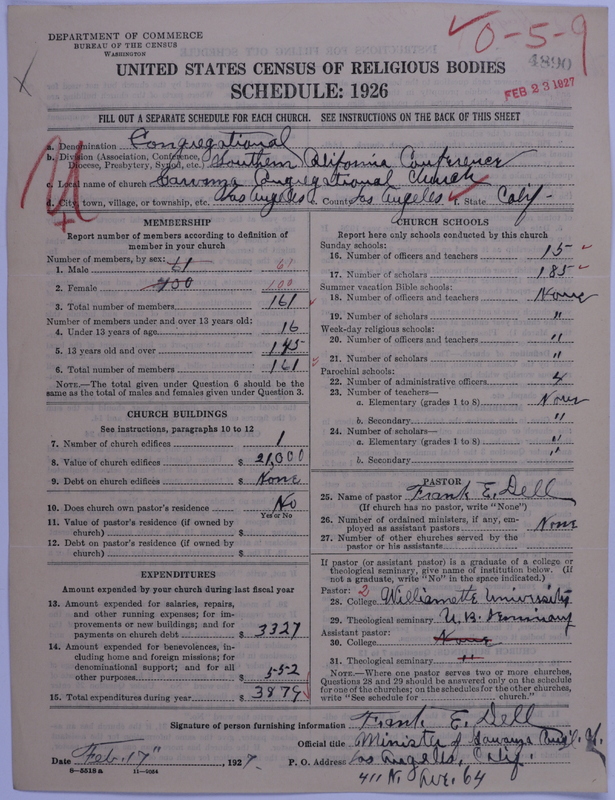 DEPARTMENT OF COMMERCE
BUREAU OF THE CENSUS
WASHINGTON
0-5-9
4890
FEB 23 1927
UNITED STATES CENSUS OF RELIGIOUS BODIES
SCHEDULE: 1926
FILL OUT A SEPARATE SCHEDULE FOR EACH CHURCH. SEE INSTRUCTIONS ON THE BACK OF THIS SHEET
a. Denomination Congregational
b. Division (Association, Conference, Diocese, Presbytery, Synod, etc.) Southern California Conference
c. Local name of church Congregational Church
d. City, town, village, or township, etc. Los Angeles e. County Los Angeles f. State Calif-
MEMBERSHIP
Report number of members according to definition of
member in your church
Number of members, by sex:
1. Male 61 61
2. Female 100 100
3. Total number of members 161
Number of members under and over 13 years old:
4. Under 13 years of age 16
5. 13 years old and over 145
6. Total number of members 161
NOTE.—The total given under Question 6 should be
same as the total of males and females given under Question 3.
CHURCH BUILDINGS
See instructions, paragraphs 10 to 12
7. Number of church edifices 1
8. Value of church edifices $ 21,000
9. Debt on church edifices $ None
10. Does church own pastor's residence No
Yes or No
11. Value of pastor's residence (if owned by
church) $
12. Debt on pastor's residence (if owned by
church) $
EXPENDITURES
Amount expended by your church during last fiscal year
13. Amount expended for salaries, repairs,
and other running expenses; for im-
provements or new buildings; and for
payments on church debt $ 3327
14. Amount expended for benevolences, in-
cluding home and foreign missions; for
denominational support; and for all
other purposes $ 552
15. Total expenditures during year $ 3879
CHURCH SCHOOLS
Report here only schools conducted by this church
Sunday schools:
16. Number of officers and teachers 15
17. Number of scholars 185
Summer vacation Bible schools:
18. Number of officers and teachers None
19. Number of scholars "
Week-day religious schools:
20. Number of officers and teachers "
21. Number of scholars "
Parochial schools:
22. Number of administrative officers
23. Number of teachers—
a. Elementary (grades 1 to 8) None
b. Secondary "
24. Number of scholars—
a. Elementary (grades 1 to 8) "
b. Secondary "
PASTOR
25. Name of pastor Frank E. Dell
(If church has no pastor, write "None")
26. Number of ordained ministers, if any, em-
ployed as assistant pastors None
27. Number of other churches served by the
pastor or his assistants
If pastor (or assistant pastor) is a graduate of a college or
theological seminary, give name of institution below. (If
not a graduate, write "No" in the space indicated.)
Pastor: 2
28. College Williamette University
29. Theological seminary U.B. Seminary
Assistant pastor:
30. College None
31. Theological seminary "
NOTE.—Where one pastor serves two or more churches,
Questions 28 and 29 should be answered only on the schedule
for one of the churches; on the schedules for the other churches,
write "See schedule for church."
Signature of person furnishing information Frank E. Dell
Official title Minister of Cong'l. Ch.
Date Feb. 17", 1927. P. O. Address Los Angeles, Calif.
8—5518 a 11—9024 411 N. Ave. 64